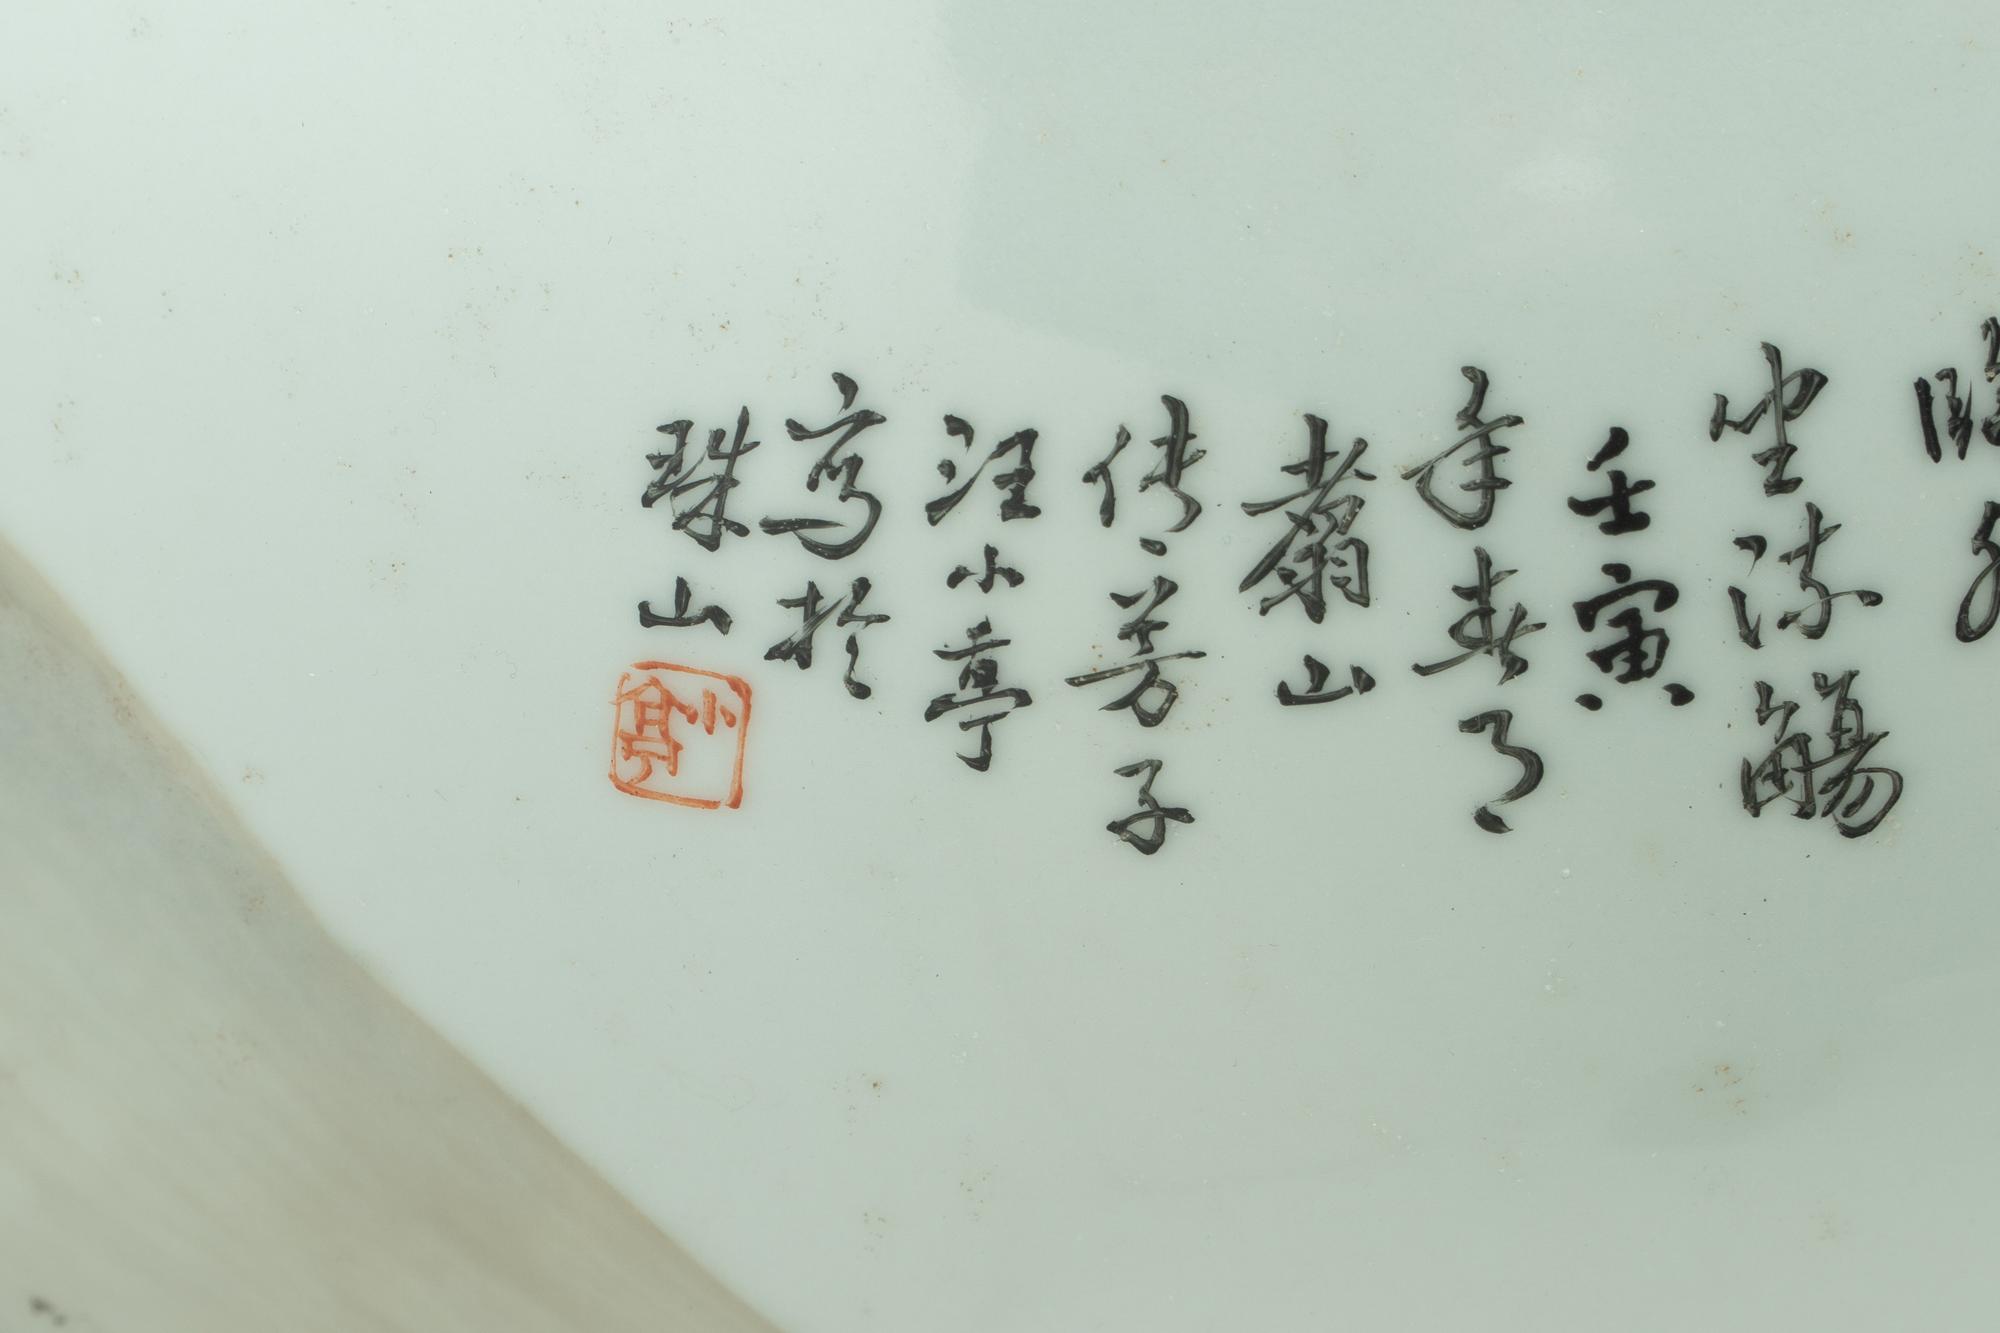 坐流觴
壬寅
年春月
翥山
传芳子
汪小亭
寫於
珠山
小亭